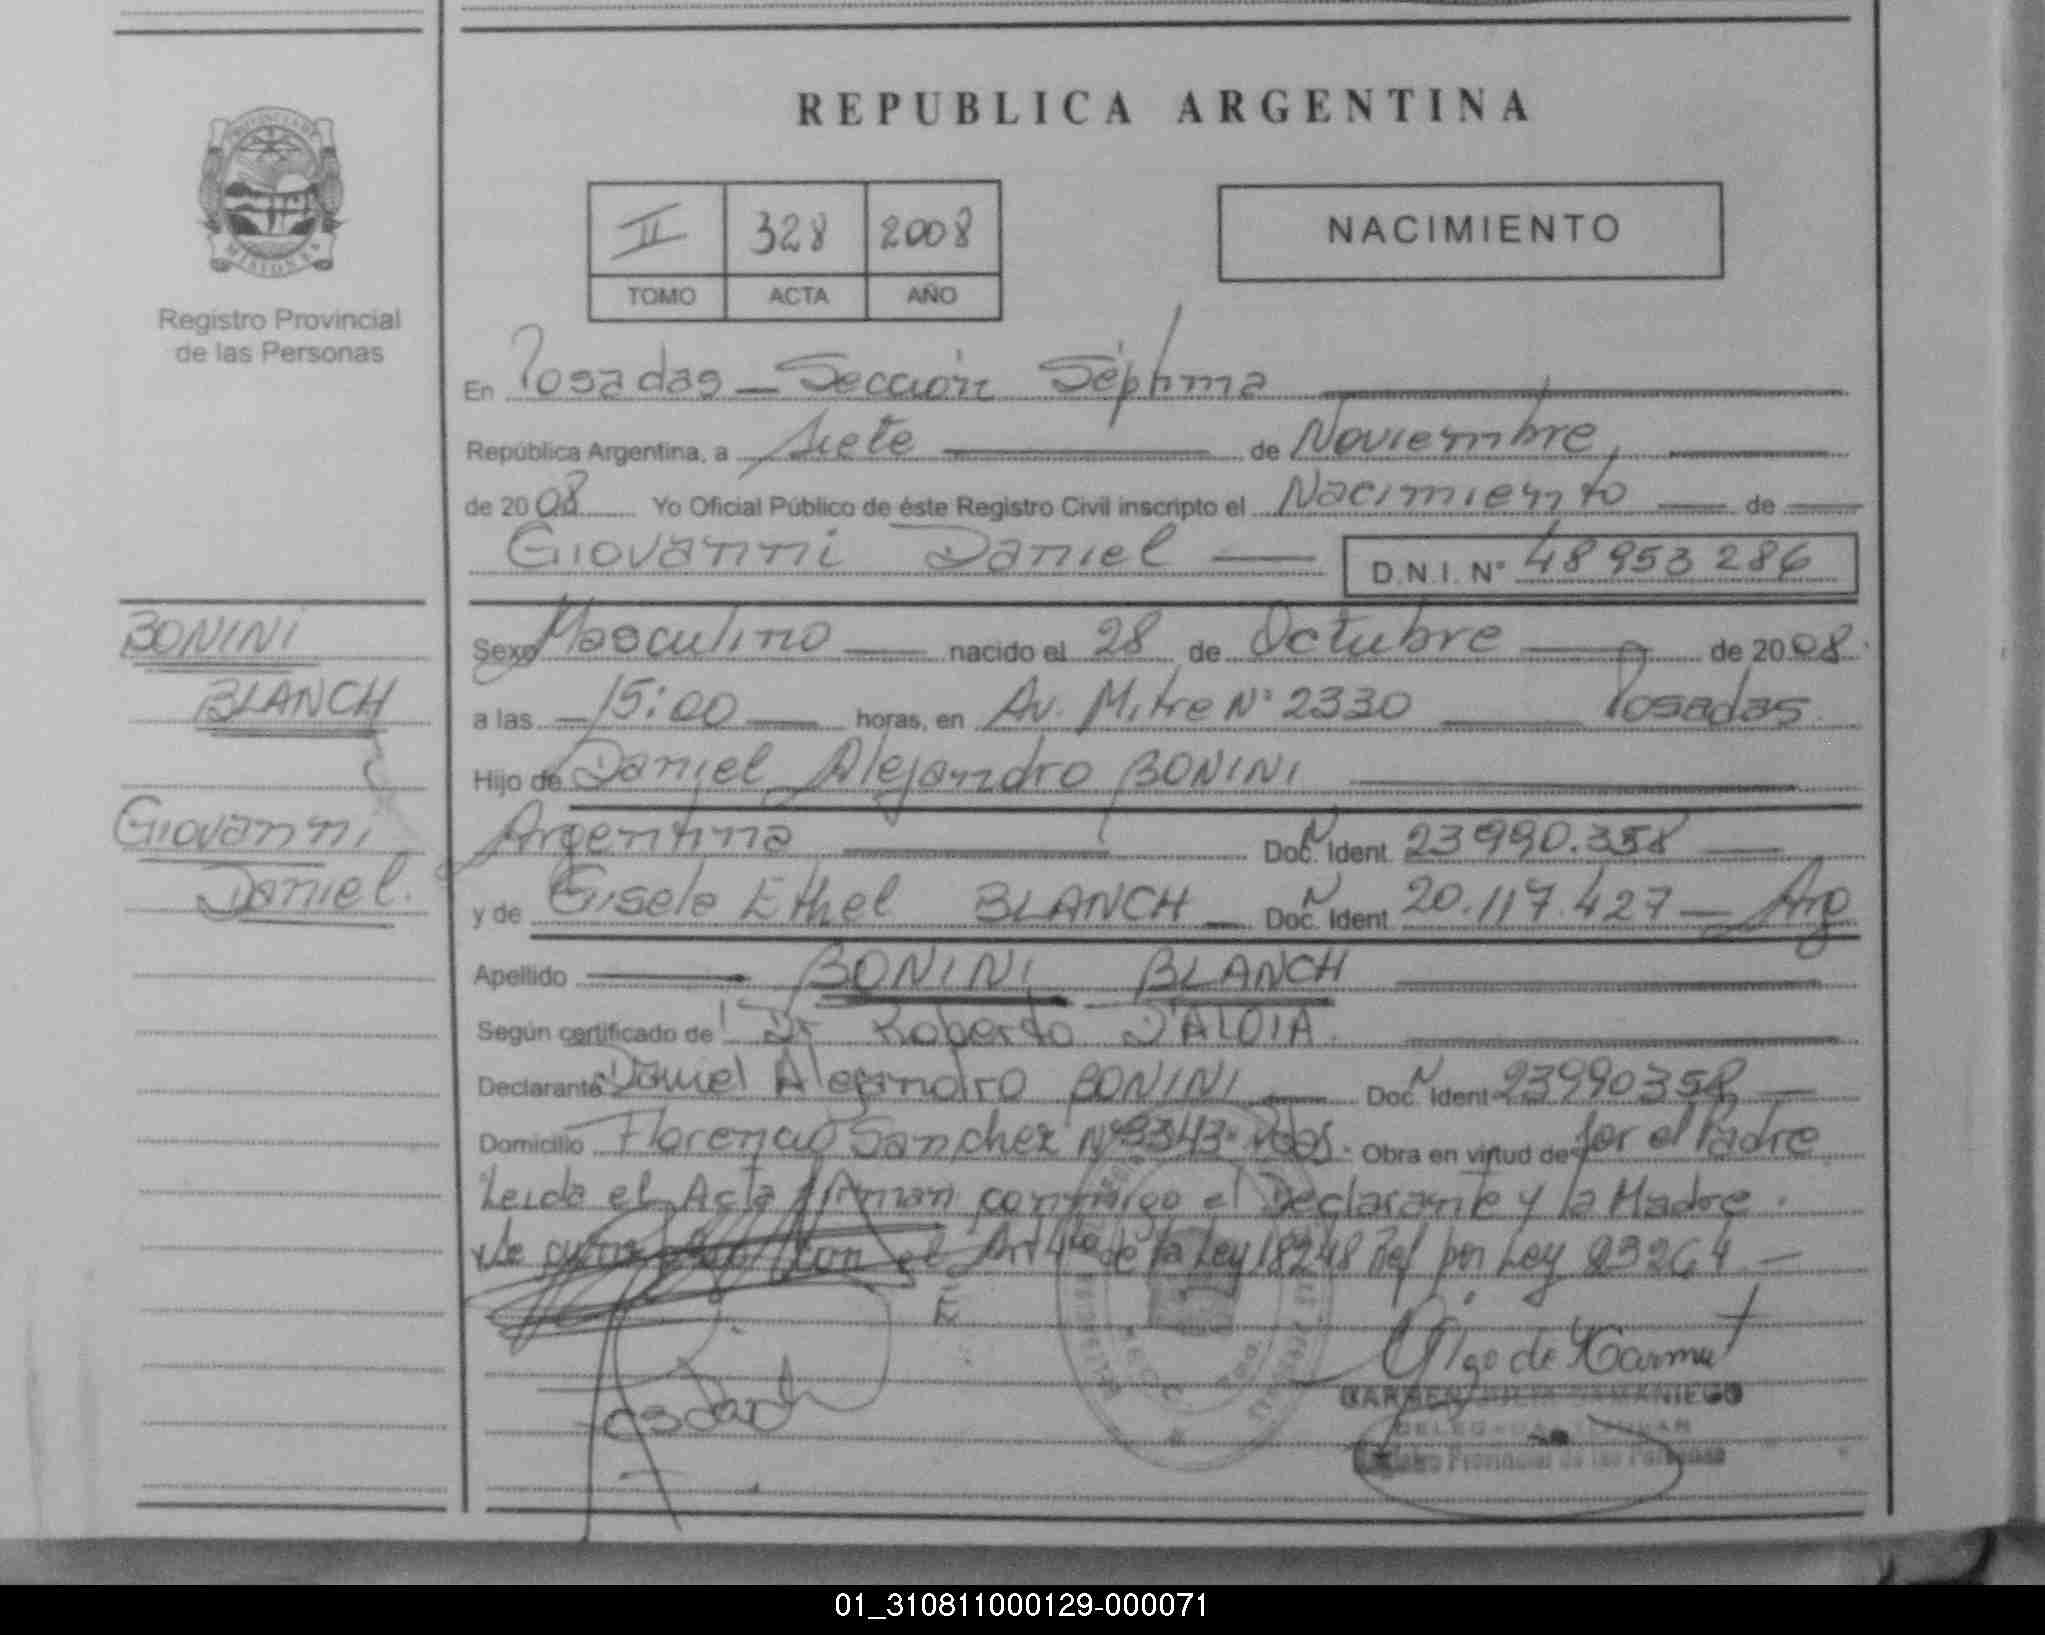 REPUBLICA ARGENTINA
PROVINCIA DE
MISIONES
Registro Provincial
de las Personas
II 328 2008
TOMO ACTA AÑO
NACIMIENTO
En Posadas - Sección Séptima
República Argentina, a Siete de Noviembre
de 2008 Yo Oficial Público de éste Registro Civil inscripto el Nacimiento de
Giovanni Daniel D.N.I. N° 48953286
BONINI
BLANCH
Giovanni
Daniel.
Sexo Masculino nacido el 28 de Octubre de 2008.
a las 15:00 horas, en Av. Mitre N° 2330 Posadas
Hijo de Daniel Alejandro BONINI
Argentina Doc. Ident. 23990.358
y de Gisele Ethel BLANCH Doc. Ident. 20.117.427 - Arg
Apellido BONINI BLANCH
Según certificado de Dr Roberto D'ALOIA.
Declarante Daniel Alejandro BONINI Doc. Ident. 23990358
Domicilio Florencio Sanchez N° 3343 - Pdas. Obra en virtud de por el Padre
Leida el Acta firman conmigo el Declarante y la Madre.
Se con el Art 4to de la Ley 18248 Ref por Ley 23264 -
CARMEN SAMANIEGO
Registro Provincial de las Personas
01_310811000129-000071